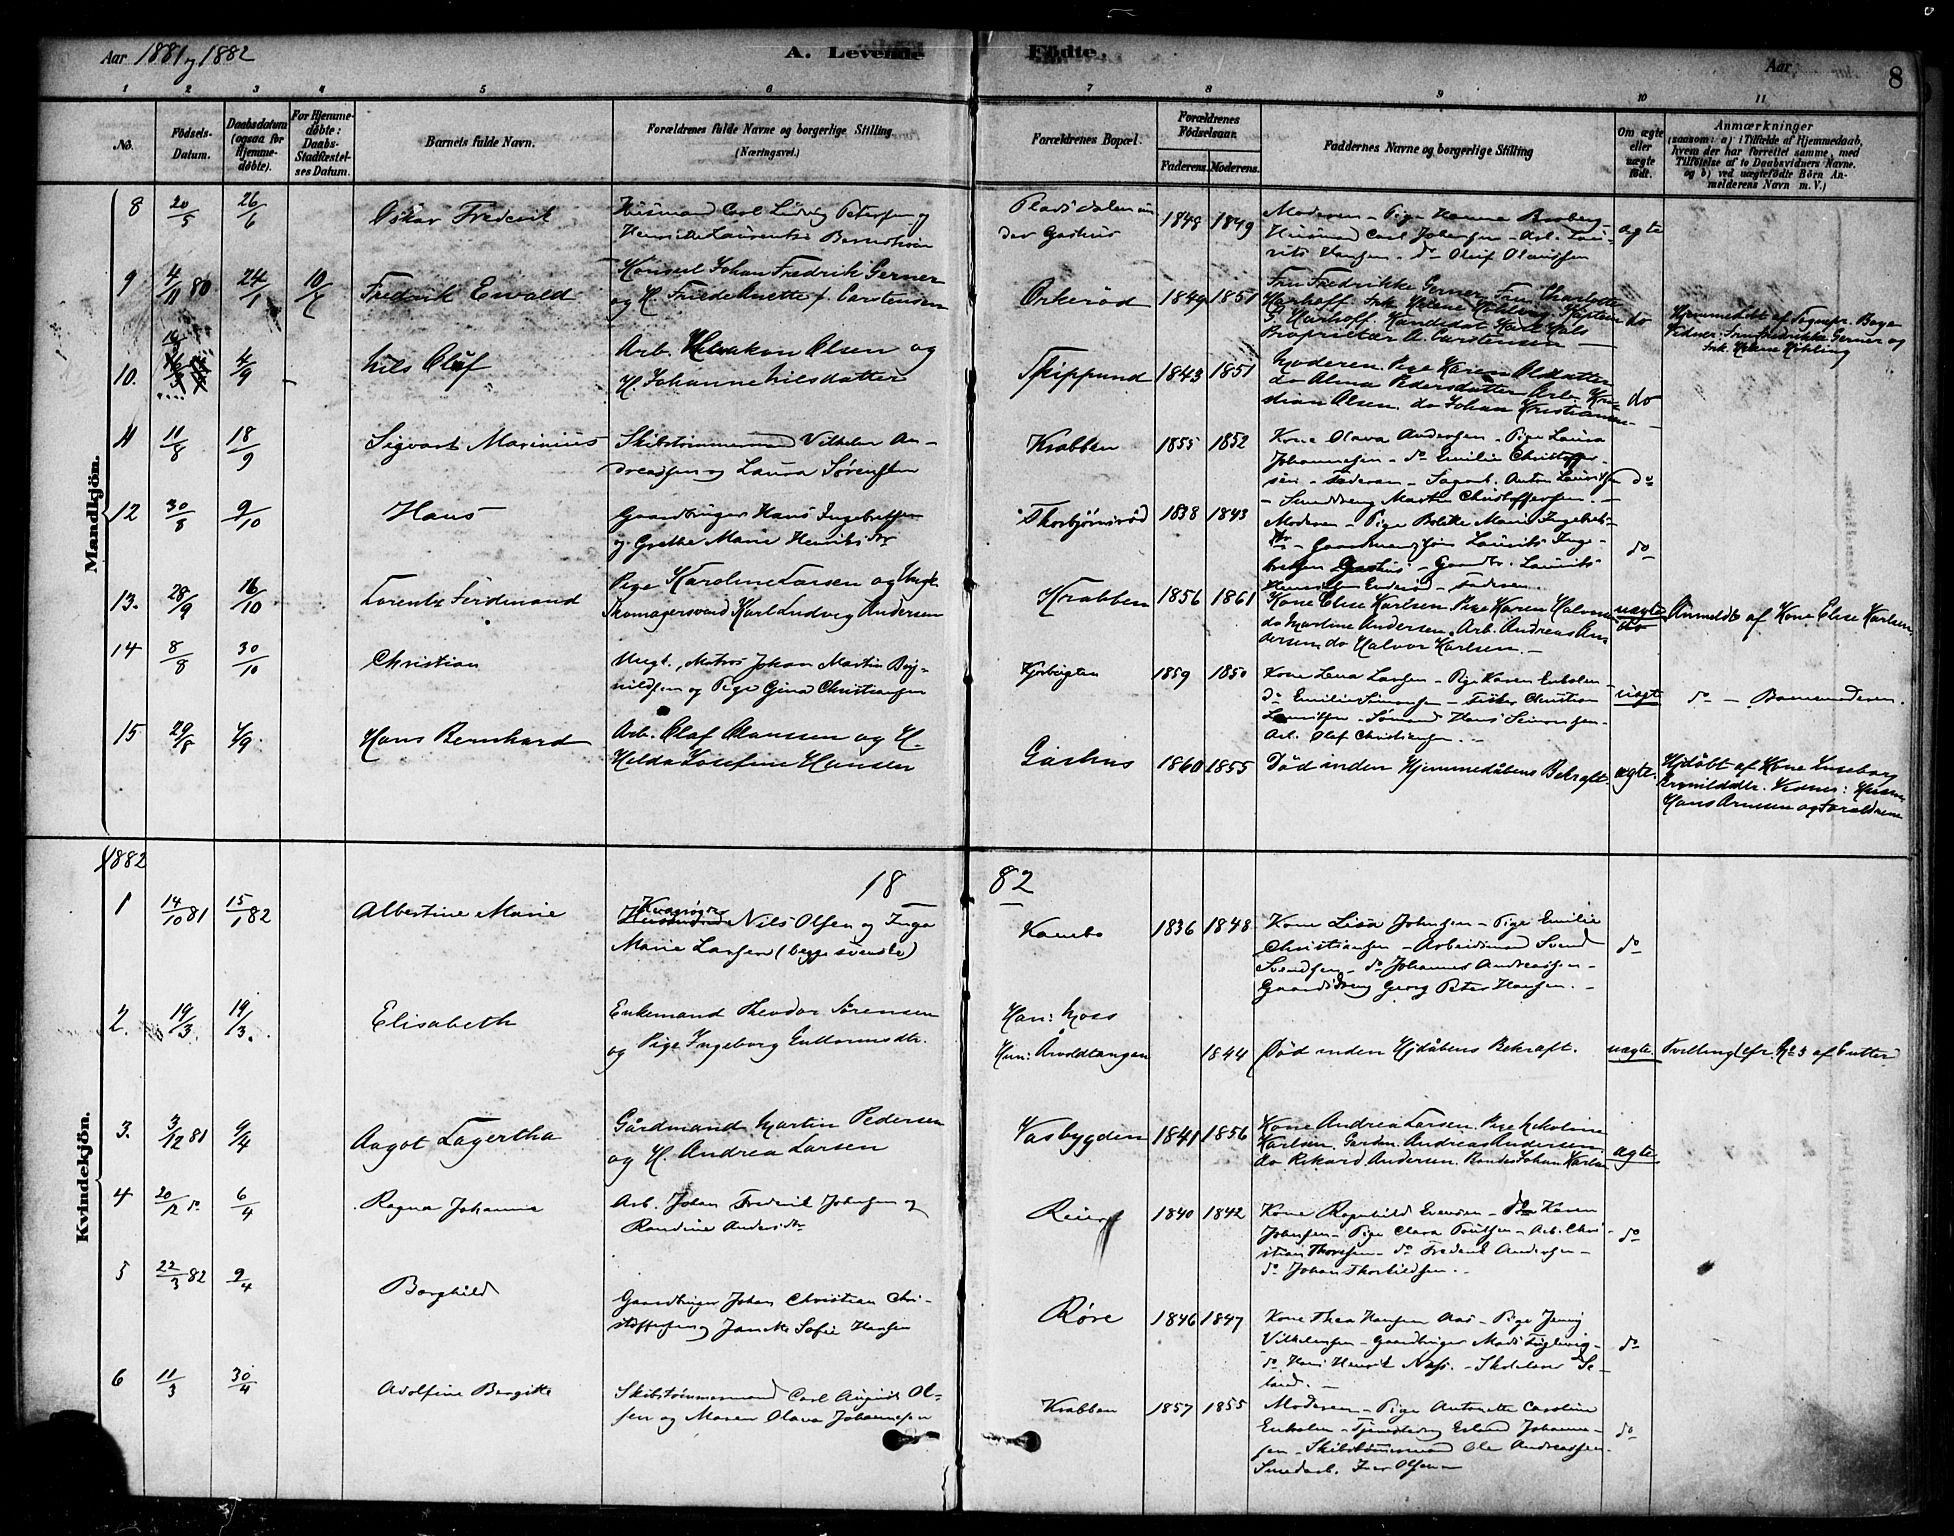 Aar 1881 og 1882
A. Levende Födte.
Aar
8
1 2 3 4 5 6 7 8 9 10 11
No.
Födsels-
Datum.
Daabsdatum
(ogsaa for
Hjemme-
döbte).
For Hjemme-
döbte:
Daabs-
Stadfæstel-
ses Datum.
Barnets fulde Navn.
Forældrenes fulde Navne og borgerlige Stilling
(Næringsvei.)
Forældrenes Bopæl.
Forældrenes
Födselsaar.
Faderens. Moderens.
Faddernes Navne og borgerlige Stilling
Om ægte
eller
uægte
födt.
Anmærkninger
(saasom: a) i Tilfælde af Hjemmedaab,
hvem der har forrettet samme, med
Tilföielse af to Daabsvidners Navne.
og b) ved uægtefödte Börn An-
melderens Navn m. V.)
Mandkjön.
8 20/5 26/6 Oskar Frederik
Husmand Carl Ludvig Petersen og
Henriette Laurentze
Pladsdalen un
der Gashus
1848 1849
Moderen – Pige Hanne Broberg
Husmand Carl Johansen – Arb. Lau-
rits Hansen – do Oluf Olavssen
ægte
9 4/11 80 24/1 10/7 Fredrik Ewald
Konsul Johan Fredrik Gerner
og H. Friede Anette f. Carstensen
Orkerød 1849 1851
Fru Fredrikke Gerner, Fru Charlotte
Proprietær A. Carstensen –
do
Hjemmedøbt af Sognepr. Bage
Vidner: Fru Fredrikke Gerner og
Frk. Helene Köhling
10. 4/9 – Nils Oluf
Arb. Haakon Olsen og
H. Johanne Nilsdatter
Skippund 1843 1851
Moderen. Pige Karen Olsdatter
do Alma Pedersdatter Arb. Kri-
stian Olsen. do Johan Kristiansen –
do
11 11/8 18/9 Sigvart Marinius
Skibstømmermand Vilhelm An-
dreassen og Laura Sørensen
Krabben 1855 1852
Kone Olava Andersen – Pige Laura
Johannesen – do Emilie Christoffer-
sen – Faderen – Sagarb. Anton Lauritsen
– Smeddreng Martin Christoffersen. –
do
12 30/8 9/10 Hans
Gaardbruger Hans Ingebretsen
og Grethe Marie Henriksdtr
Thorbjørnsrød 1838 1843
Moderen – Pige Bolette Marie Ingebrets-
dtr – Gaardmandssøn Laurits Inge-
bretsen Gashus – Gaardbr. Laurits
Henriksen Enderød – Faderen
do
13. 28/9 16/10 Lorentz Ferdinand
Pige Karoline Larsen og Ungk.
Skomagersvend Karl Ludvig Andersen
Krabben 1856 1861
Kone Elise Karlsen. Pige Karen Halvors
do Martine Andersen. Arb. Andreas An
dersen do Halvor Karlsen. –
uægte
do
Anmeldt af Kone Elise Karlsen.
14 8/8 30/10 Christian
Ungk. Matros Johan Martin Bøj-
nildsen og Pige Gina Christiansen
1859 1850
Kone Lena Larsen – Pige Karen Enholm –
do Emilie Simonsen – Fisker Christian
Lauritsen – Sømand Hans Simonsen –
Arb. Olaf Christiansen. –
uægte
do – Barnemoderen.
15 29/8 4/9. Hans Bernhard
Arb. Olaf Clausen og H.
Helda Josefine Hansen
Gashus 1860 1855
Død inden Hjemmedåbens Bekræft.
ægte.
Hjdøbt af Kone Ingeborg
Vidner: Husm.
Hans Arnesen og Forældrene
1882
18 82
Kvindekjön.
1 14/10 81 15/1 82 Albertine Marie
Nils Olsen og Inga
Marie Larsen (begge svenske)
Kambo 1836 1848
Kone Lisa Johansen – Pige Emilie
Christiansen – Arbeidsmand Svend
Svendsen – do Johannes Andreassen –
Gaardsdreng Georg Peter Hansen. –
do
2. 19/3 19/3. Elisabeth
Enkemand Theodor Sørensen
og Pige Ingeborg Guttormsdtr.
Han: Moss
Hun: Årvoldtangen
1844
Død inden Hjdåbens Bekræft.
uægte.
Tvilling (cfr. No 3 af Gutter)
3. 3/12 81 9/4 Aagot Lagertha
Gårdmand Martin Pedersen
og H. Andrea Larsen
Vasbygden 1841 1856
Kone Andrea Larsen Pige Nikoline
Karlsen. Gardm. Andreas Andersen
do Rikard Andersen. Bondes. Johan Karlsen
ægte
4 20/12 do 6/4 Ragna Johanne
Arb. Johan Frederik Johansen og
Randine Andersdtr
Reier 1840 1842
Kone Ragnhild Evensen – do Karen
Johansen – Pige Clara Poulsen – Arb. Chri-
stian Thoresen – do Frederik Andersen –
do Johan Thorkildsen. –
do
5 22/3 82 9/4 Borghild
Gaardbruger Johan Christian Chri-
stoffersen og Janette Sofie Hansen
Røre 1846 1847
Kone Thea Hansen Aas – Pige Jenny
Vilhelmsen – Gaardbruger Mads Fuglevig –
do Hans Henrik Næss. – Skolelærer Se-
land. –
do
6 11/3 30/4 Adolfine Bergitte
Skibstømmermand Carl August Ol-
sen og Maren Olava Johannesen
Krabben 1857 1855
Moderen – Pige Antonette Caroline
Enholm – Tjenestedreng Erland Johanne-
sen – Skibstømmermand Ole Andreassen –
Smedarb. Iver Olsen –
do